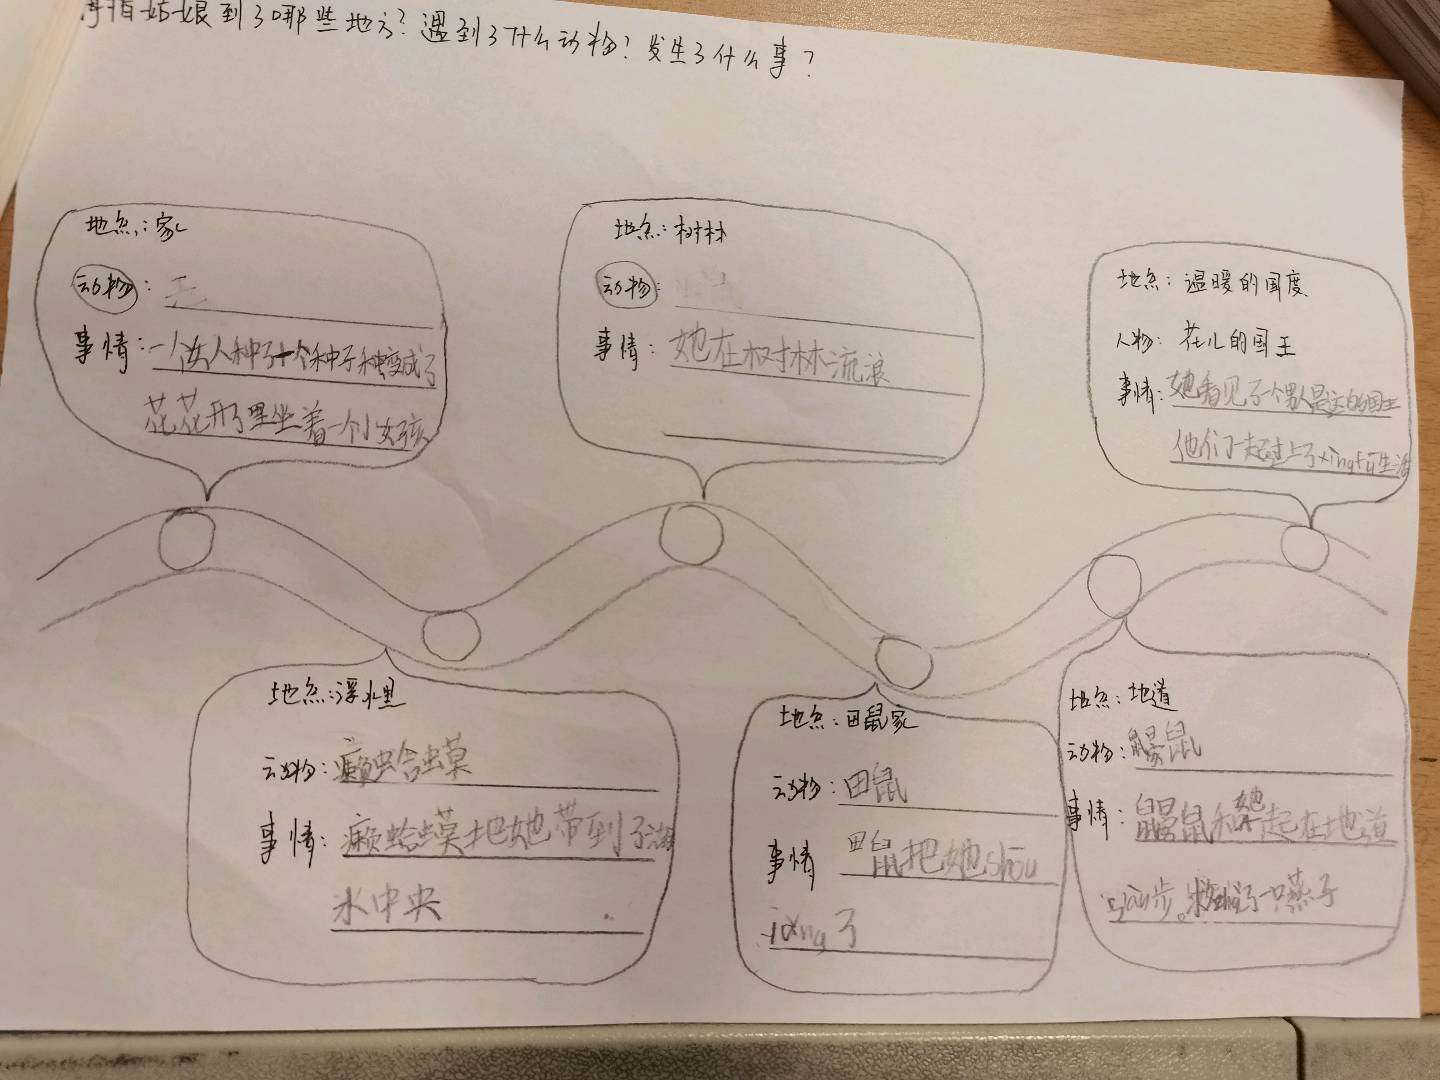 拇指姑娘到了哪些地方?遇到了什么动物?发生了什么事?
地点:家
动物:无
事情:一个女人种了个种子种变成了
花花开了里坐着一个小女孩
地点:树林
动物:
事情:她在树林流浪
地点:温暖的国度
人物:花儿的国王
事情:她看见了一个男人是这的国王
他们一起过上了xingfu生活
地点:浮水里
动物:癞蛤蟆
事情:癞蛤蟆把她带到了湖
水中央
地点:田鼠家
动物:田鼠
事情 田鼠把她shōu
iǎng了
地点:地道
动物:鼹鼠
事情:鼹鼠和她起在地道
步。了一只燕子